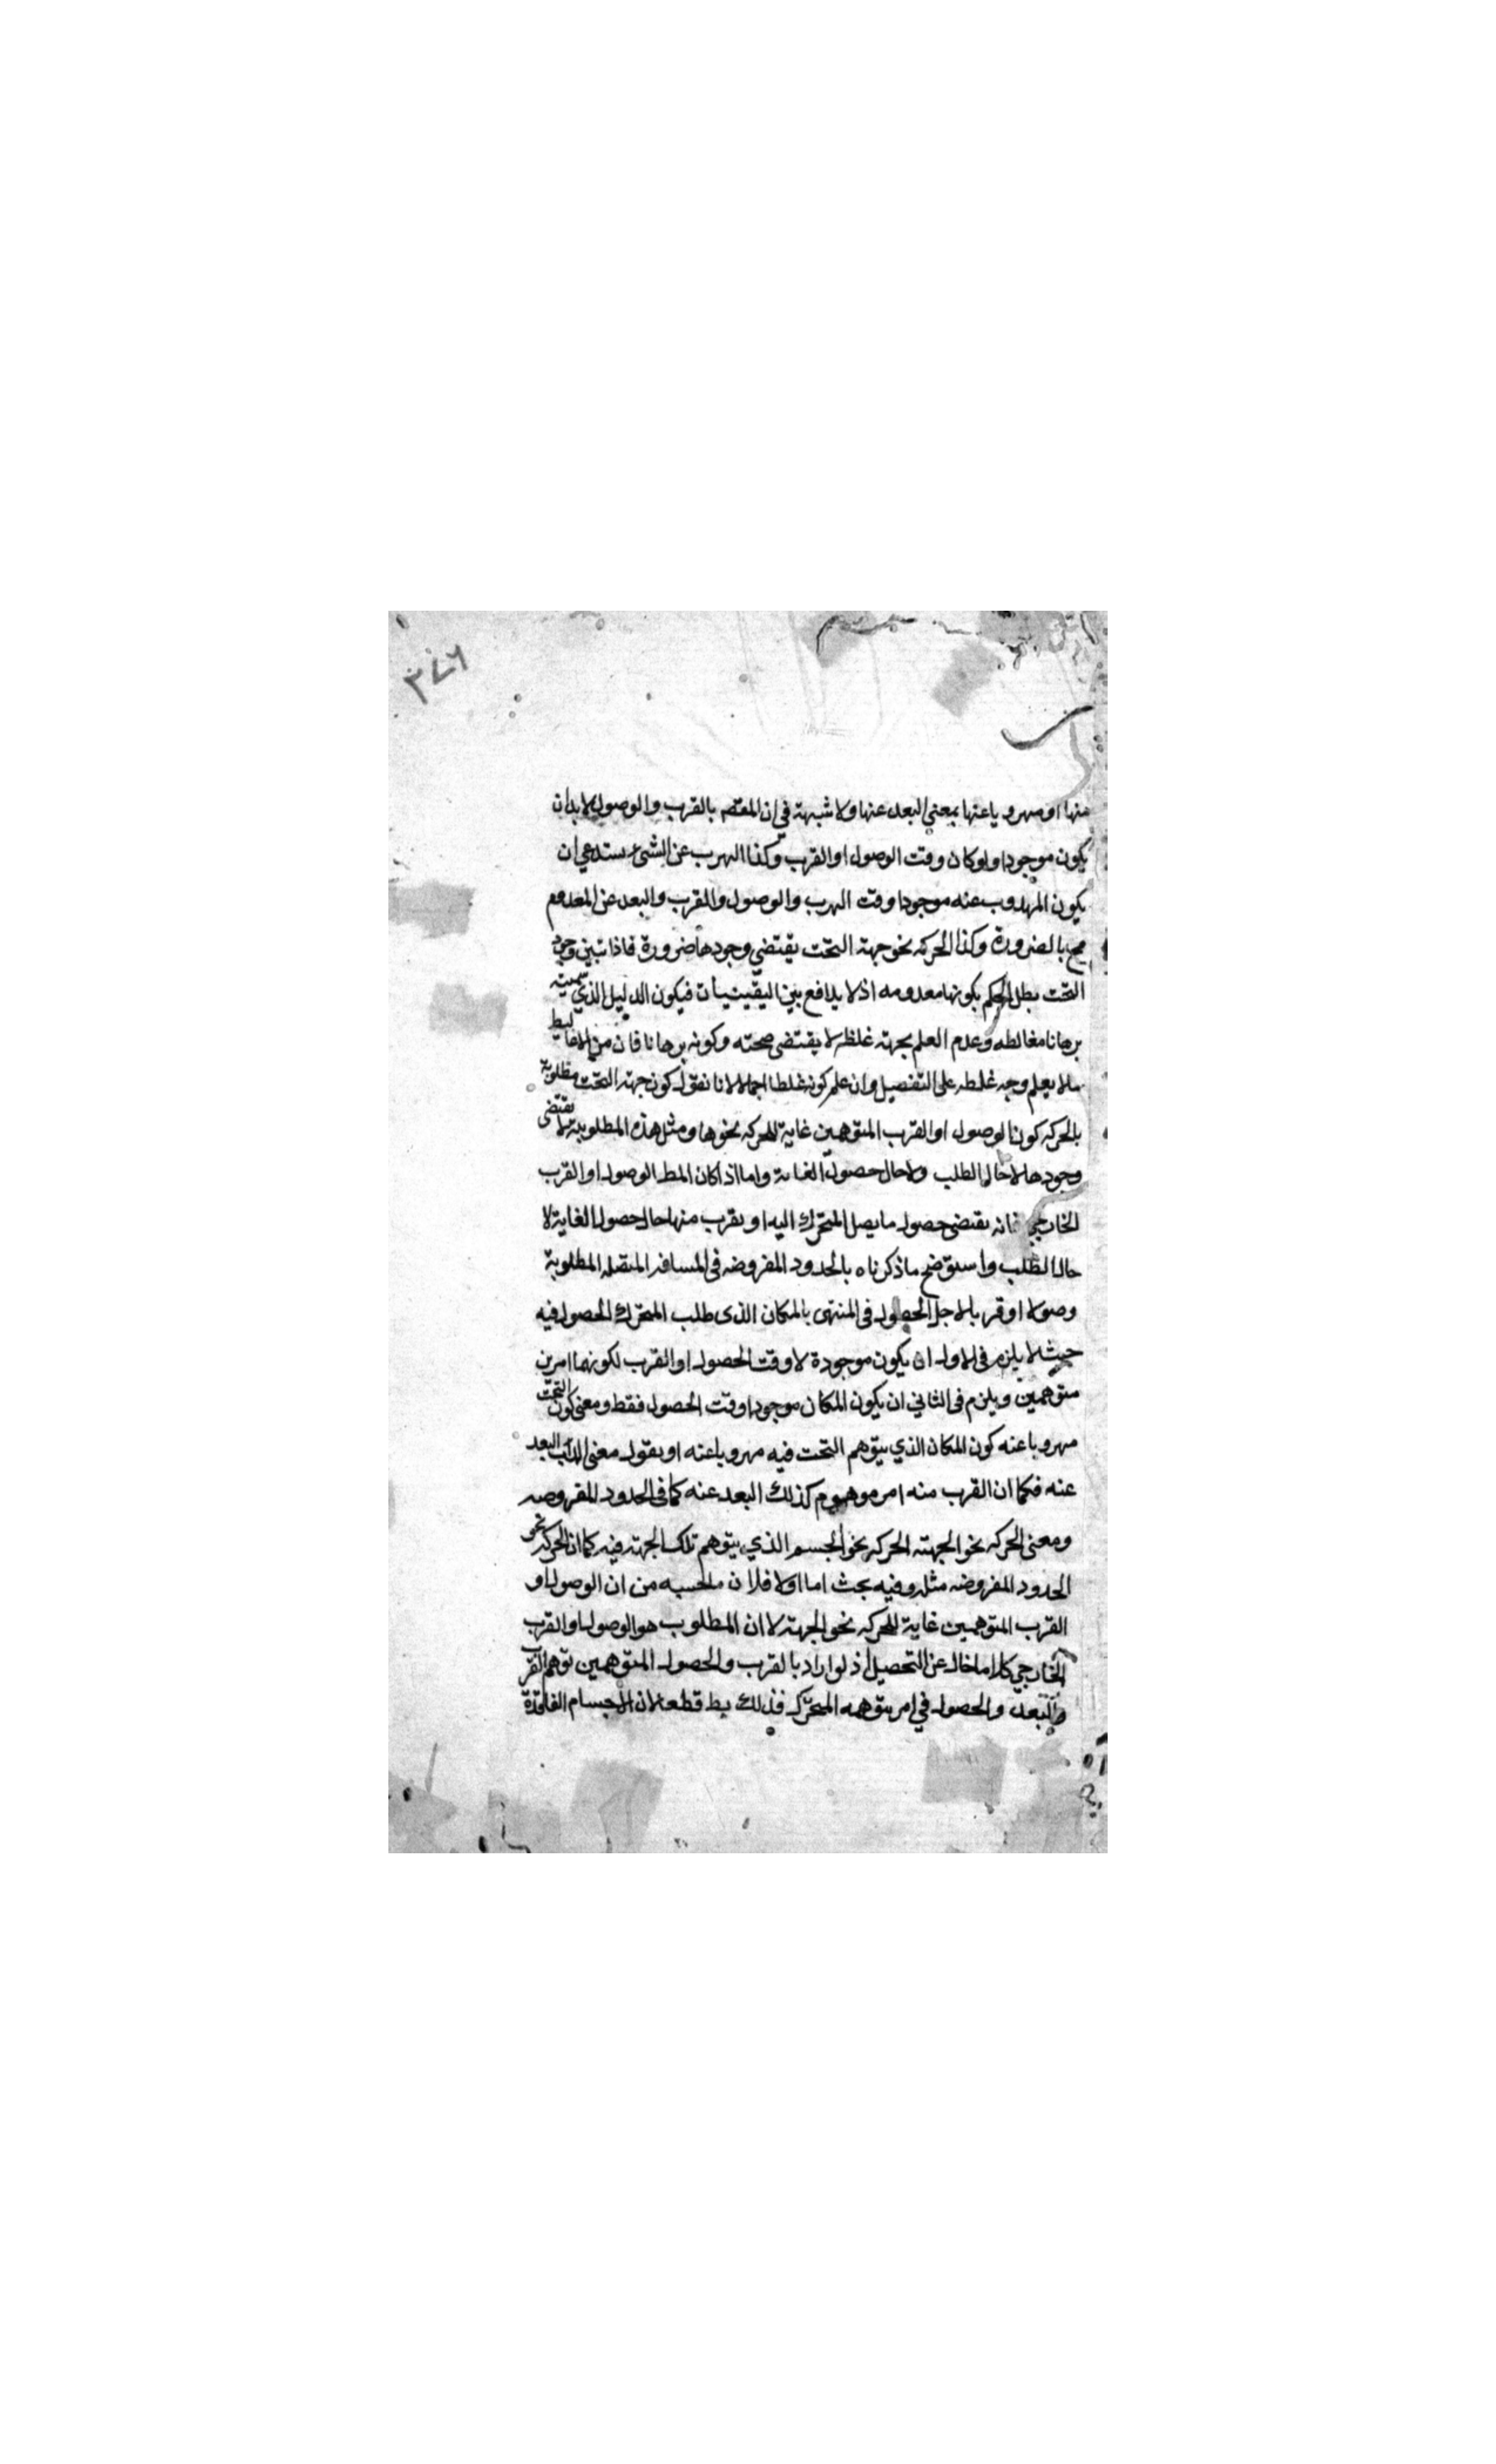 ٣٧٦
منها او مهروبا عنها بمعني البعد عنها ولا شبهة في ان المقصد بالقرب والوصول لابد ان
يكون موجودا ولو كان وقت الوصول او القرب وكذا الهرب عن الشئ يستدعي ان
يكون المهروب عنه موجودا وقت الهرب والوصول والقرب والبعد عن المعدوم
مح بالضرورة وكذا الحركه نحو جهة التحت يقتضي وجودها ضرورة فاذا تبين وجود
التحت بطل الحكم بكونها معدومه اذ لا يدافع بين اليقينيات فيكون الدليل الذي سميته
برهانا مغالطه وعدم العلم بجهة غلطه لا يقتضي صحته وكونه برهانا فان من الاغاليط
ما لا يعلم وجه غلطه على التفصيل وان علم كونه غلطا اجمالا لانا نقول كون جهة التحت مطلوبة
بالحركه كون الوصول او القرب المتوهمين غاية للحركه نحوها ومثل هذه المطلوبية لا يقتضى
وجودها لا حال الطلب ولا حال حصول الغاية واما اذا كان المط الوصول او القرب
الخارجي فانه يقتضى حصول ما يصل المتحرك اليه او يقرب منها حال حصول الغاية لا
حال الطلب واستوضح ما ذكرناه بالحدود المفروضه في المسافه المتصله المطلوبة
وصولا او قربا لاجل الحصول في المنتهى بالمكان الذى طلب المتحرك الحصول فيه
حيث لا يلزم في الاول ان يكون موجودة لا وقت الحصول او القرب لكونهما امرين
متوهمين ويلزم في الثاني ان يكون المكان موجودا وقت الحصول فقط ومعنى كون التحت
مهروبا عنه كون المكان الذي يتوهم التحت فيه مهروبا عنه او نقول معنى البعد
عنه فكما ان القرب منه امر موهوم كذلك البعد عنه كما في الحدود المفروضه
ومعنى الحركه نحو الجهته الحركه نحو الجسم الذي يتوهم تلك الجهته فيه كما ان الحركه نحو
الحدود المفروضه مثله وفيه بحث اما اولا فلان ما حسبه من ان الوصول او
القرب المتوهمين غاية للحركه نحو الجهته لا ان المطلوب هو الوصول او القرب
الخارجي كلاما خال عن التحصيل اذ لو اراد بالقرب والحصول المتوهمين توهم القرب
والبعد والحصول في امر يتوهمه المتحرك فذلك بط قطعا لان الاجسام الفاقدة